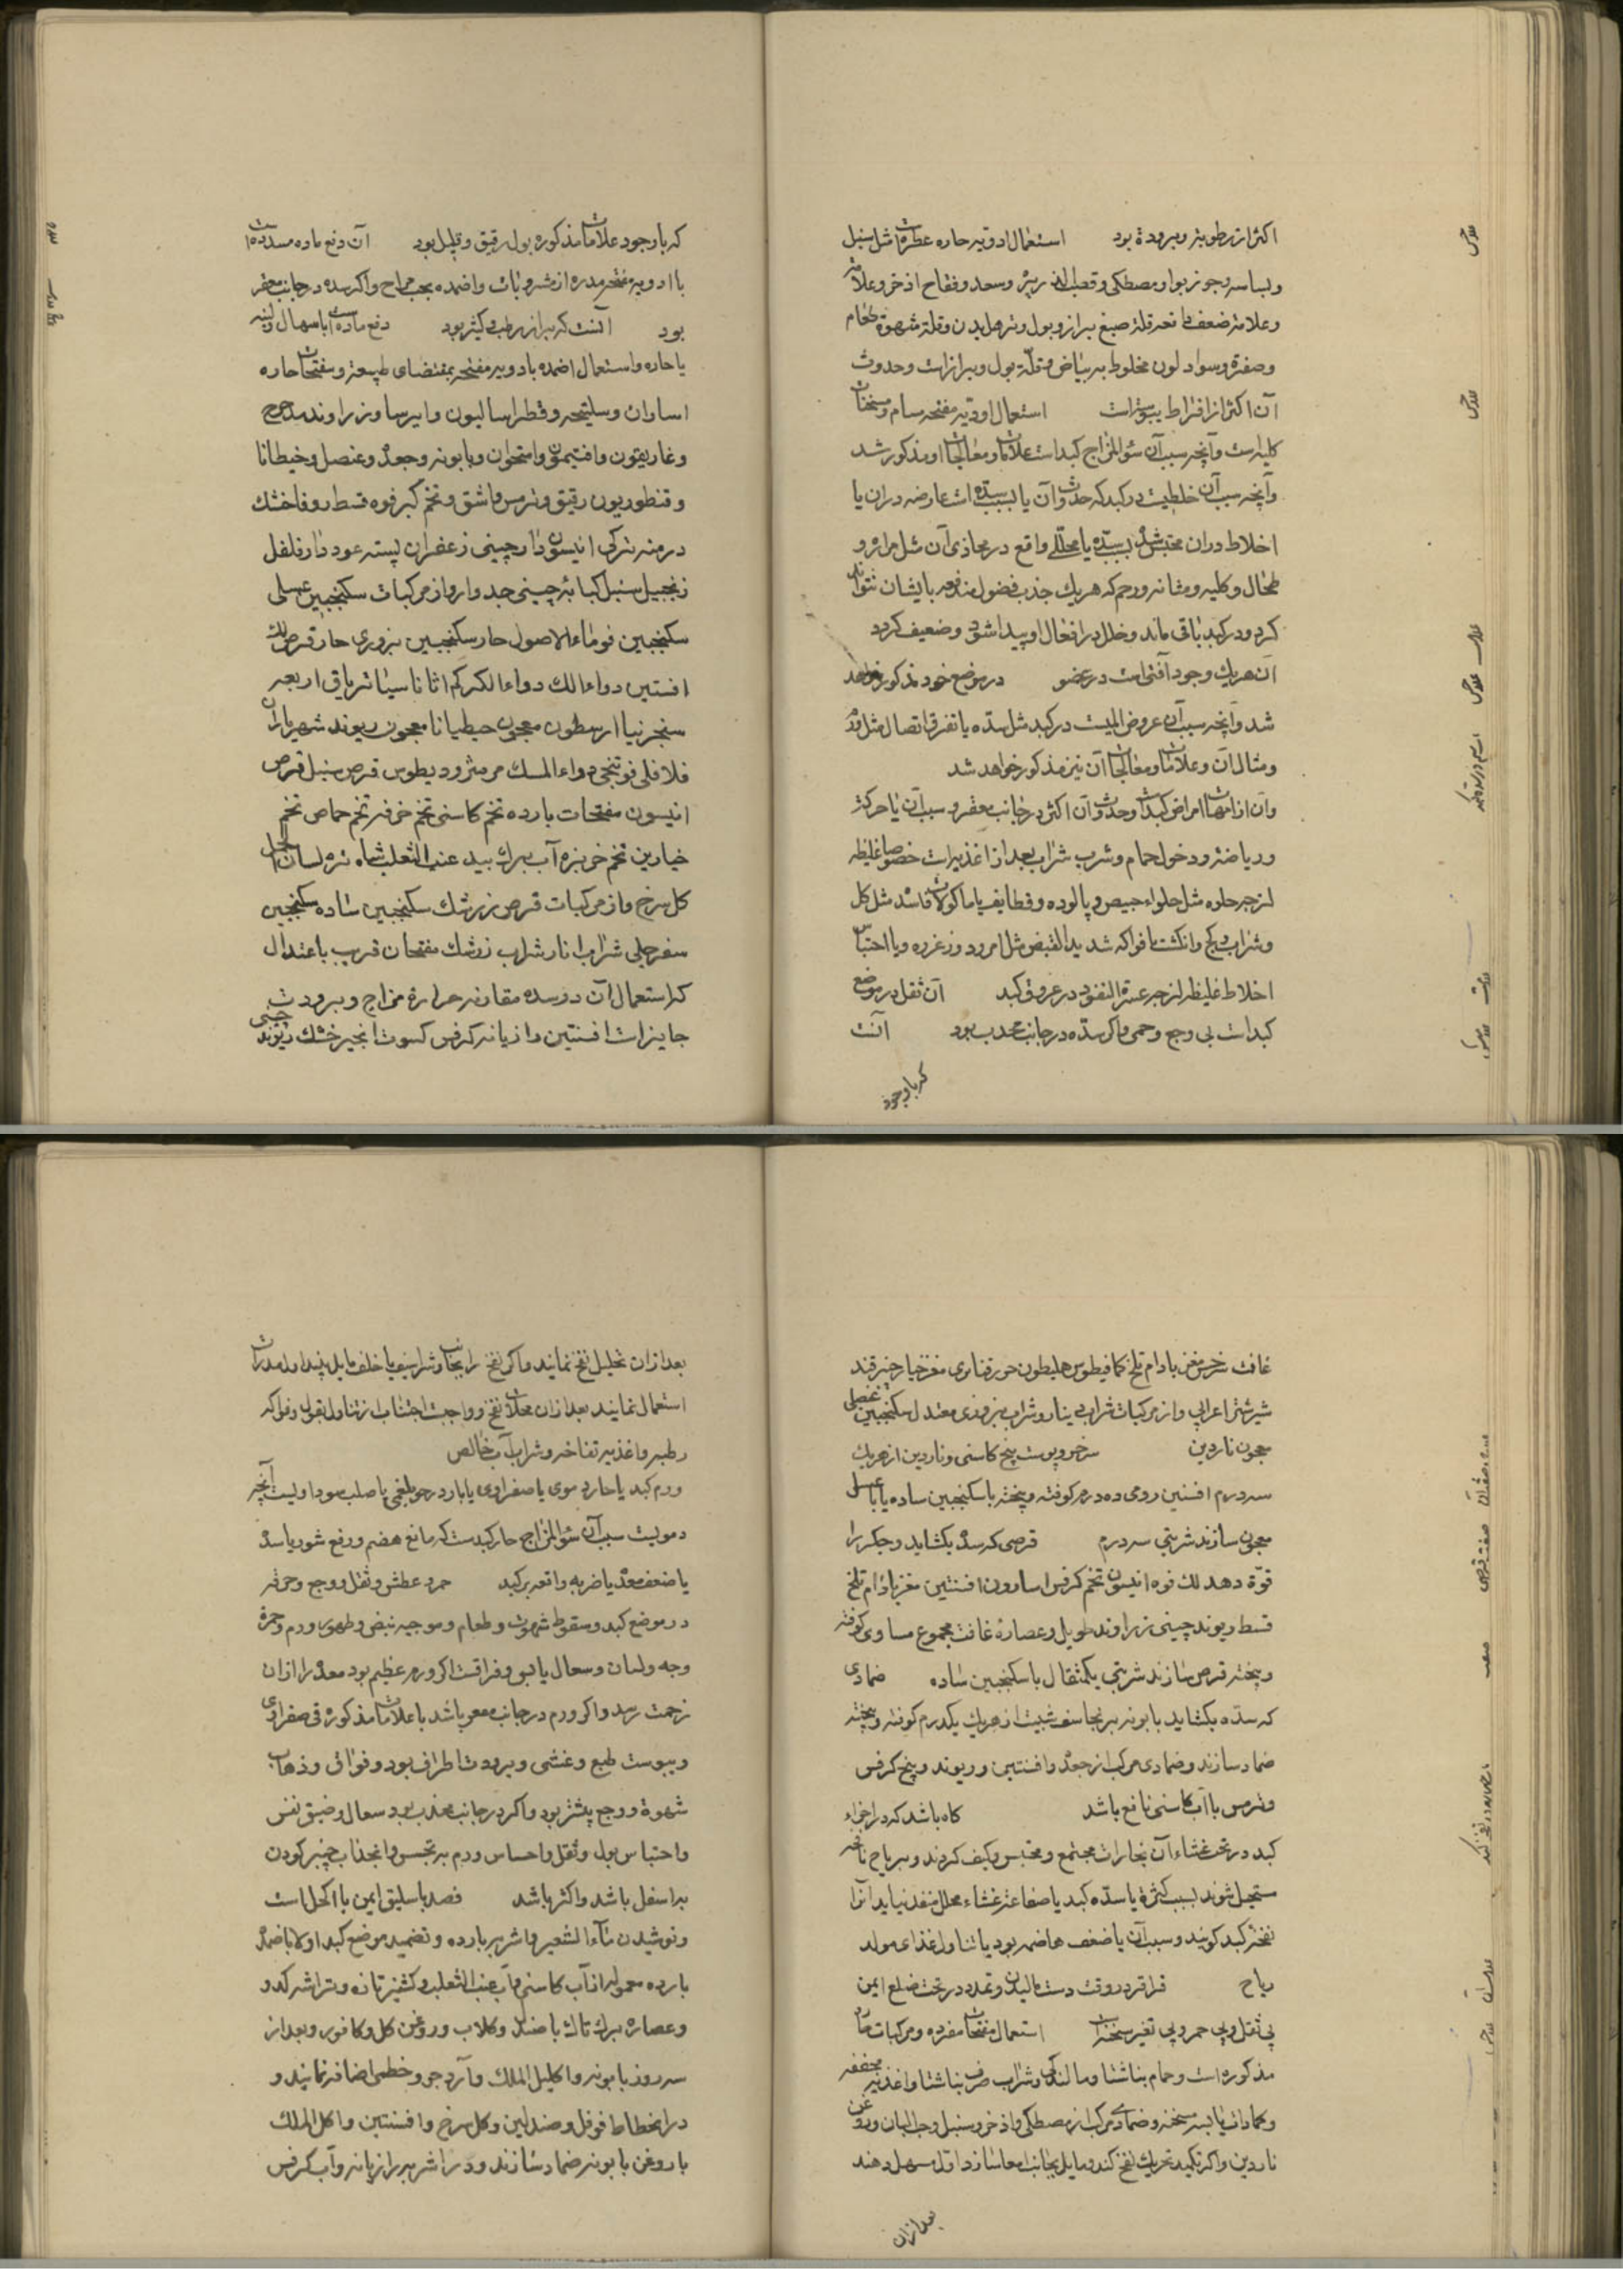 اکثر از رطوبة و برودة بود استعمال ادویه حاره عطره است مثل سنبل
و بسباسه و جوزبوا و مصطکی و قصب الذریره و سعد و فقاح اذخر و علامة
و علامة ضعف دافعه قلة صبغ براز و بول و ترهل بدن و قلة شهوة طعام
و صفرة و سواد لون مخلوط به بیاض و قلّة بول و براز است و حدوث
آن اکثر از افراط یبوسة است استعمال ادویه مفتحه مسام و مسخنات
کلیه است و آنچه سبب آن سؤالمزاج کبد است علامات و معالجات او مذکور شد
و آنچه سبب آن خلطیست در کبد که حدوث آن یا بسبب سده است عارضه در ان یا
اخلاط در ان محتبس شد بسبب سدّه یا محلّلی واقع در محاذی آن مثل مراره و
طحال و کلیه و مثانه و رحم که هریك جذب فضول مندفعه بایشان نتوانند
کرد و در کبد باقی ماند و خلل در افعال او پیدا شود و ضعیف کردد
آن هریك وجود آفتی است در عضو در موضع خود مذکور خواهد
شد و آنچه سبب آن عروض المیست در کبد مثل سدّه یا تفرق اتصال مثل
و مثال آن و علامات و معالجات آن نیز مذکور خواهد شد
و آن از امهات امراض کبد است و حدوث آن اکثر در جانب مقعر و سبب آن یا حرکة
و ریاضة و دخول حمام و شرب شراب بعد از اغذیه است خصوصا غلیظه
لزجه حلوه مثل حلواء خبیص و پالوده و قطایف یا ماکولات فاسد مثل کل
و شراب و کچ و انکشت یا فواکه شدیدالقبض مثل امرود و زعرور و یا احتباس
اخلاط غلیظه لزجه عسرة النفوذ در عروق کبد آن ثقل در موضع
کبد است بی وجع و حمی و اکر سدّه در جانب محدب بود آنست
که باوجود
که باوجود علامات مذکوره بول رقیق و قلیل بود آن دفع ماده مسدده است
با ادویه مفتحه مدره از مشروبات و اضمده بحسب مزاج و اکر سده در جانب مقعر
بود آنست که براز رطب و کثیر بود دفع ماده است باسهال لینه
یا حاره و استعمال اضمده بادویه مفتحه بمقتضای طبیعة و مفتحات حاره
اسارون و سلیخه و فطراسالیون و ایرسا و زراوند مدحرج
و غاریقون و افتیمون و اسقولوقندریون و بابونه و جعده و عنصل و جنطیانا
و قنطوریون رقیق و ترمس و اشق و تخم کبر فوه قسط روفا خشك
درمنه ترکی انیسون دارچینی زعفران پسته عود دارفلفل
زنجبیل سنبل کبابه چینی جدوار و از مرکبات سکنجبین عسلی
سکنجبین فوماء الاصول حار سکنجبین بزوری حار قرص لك
افسنتین دواء الك دواء الکرکم اثاناسیا تریاق اربعه
سنجرنیا ارسطون معجون جنطیانا معجون ریوند شهریاران
فلافلی فوتنجی دواء المسك مرمثرودیطوس قرص سنبل قرص
انیسون مفتحات بارده تخم کاسنی تخم خرفه تخم حماض تخم
خیارین تخم خربزه آب برك بید عنب الثعلب شاه تره لسان الحمل
کل سرخ و از مرکبات قرص زرشك سکنجبین ساده سکنجبین
سفرجلی شراب انار شراب زرشك مفتحات قریب باعتدال
که استعمال آن در سده مقارنه حرارة مزاج و برودت
جایز است افسنتین رازیانه کرفس کسوت انجیر خشك ریوند چینی
غافت سرخس مغز بادام تلخ کمافیطوس هلیطون مغز خیارچنبر قند
شیرشتر اعرابی و از مرکبات شراب دینار و شراب بزوری معتدل سکنجبین عنصلی
معجون ناردین سرخس و پوست بیخ کاسنی و ناردین از هریك
سه درم افسنتین رومی ده درم کوفته و بیخته با سکنجبین ساده یا با عسل
معجون سازند شربتی سه درم قرصی که سده بکشاید و جکر را
قوة دهد لك فوه انیسون تخم کرفس اسارون افسنتین مغز بادام تلخ
قسط ریوند چینی زراوند طویل و عصارهٔ غافت مجموع مساوی کوفته
و بیخته قرص سازند شربتی یکمثقال با سکنجبین ساده ضمادی
که سدّه بکشاید بابونه برنجاسف شبت از هریك یکدرم کوفته و بیخته
ضماد سازند و ضمادی مرکب از جعده و افسنتین و ریوند و بیخ کرفس
و ترمس با آب کاسنی نافع باشد کاه باشد که در اجزاء
کبد در تحت غشاء آن بخارات مجتمع و محتبس و کثیف کردند و بریاح نافخه
مستحیل شوند بسبب کثرة یا سدّه کبد یا صفاقة غشاء محلل منفذ نیابد آنرا
نفخة کبد کویند و سبب آن یا ضعف هاضمه بود یا تناول اغذای مولد
ریاح قراقر در وقت دست مالیدن و تمدد در تحت ضلع ایمن
بی ثقل و بی حمی و بی تغیر سحنه است استعمال مفتحات مفرده و مرکبات حاره
مذکوره است و حمام بناشتا و مالیدن کبد و شراب صرف بناشتا و اغذیه مخففه
و کمادات یابسه مسخنه و ضمادی مرکب از مصطکی و اذخر و سنبل و حب البان و روغن
ناردین و اکر تکمید تحریك نفخ کند و مایل بجانب امعا سازد اول مسهل دهند
بعد از ان
بعد از ان تحلیل نفخ نمایند و اکر نفخ را بجانب شراسیف یا خلف مایل یابند اول مدرات
استعمال نمایند بعد از ان محللات نفخ و واجبست اجتناب از تناول بقول و فواکه
رطبه و اغذیه نفاخه و شراب آب خالص
ورم کبد یا حار دموی یا صفراوی یا بارد رخو بلغمی یا صلب سوداویست آنچه
دمویست سبب آن سؤالمزاج حار کبد است که مانع هضم و دفع شود یا سده
یا ضعف معده یا ضربه واقعه بر کبد حمی و عطش و ثقل و وجع و حرقه
در موضع کبد و سقوط شهوت و طعام و موجیه نبض و ظهور ورم و حمرة
وجه و لسان و سعال یابس و فواقست اکر ورم عظیم بود معده را از ان
زحمت رسد و اکر ورم در جانب مقعر باشد با علامات مذکوره قی صفراوی
و یبوست طبع و غشی و برودت اطراف بود و فواق و ذهاب
شهوة و وجع بیشتر بود و اکر در جانب محدب بود سعال و ضیق نفس
و احتباس بول و ثقل و احساس ورم به تجسس و انجذاب چنبر کردن
به اسفل باشد و اکثر باشد فصد باسلیق ایمن یا اکحل است
و نوشیدن ماء الشعیر و اشربه بارده و تضمید موضع کبد اولا باضمده
بارده معمول از آب کاسنی و آب عنب الثعلب و کشنیز تازه و تراشه کدو
و عصاره برك تاك با صندل و کلاب و روغن کل و کافور و بعد از
سه روز بابونه و اکلیل الملك و آرد جو و خطمی اضافه نمایند و
در انحطاط فوفل و صندلین و کل سرخ و افسنتین و اکلیل الملك
با روغن بابونه ضماد سازند و در اشربه رازیانه و آب کرفس